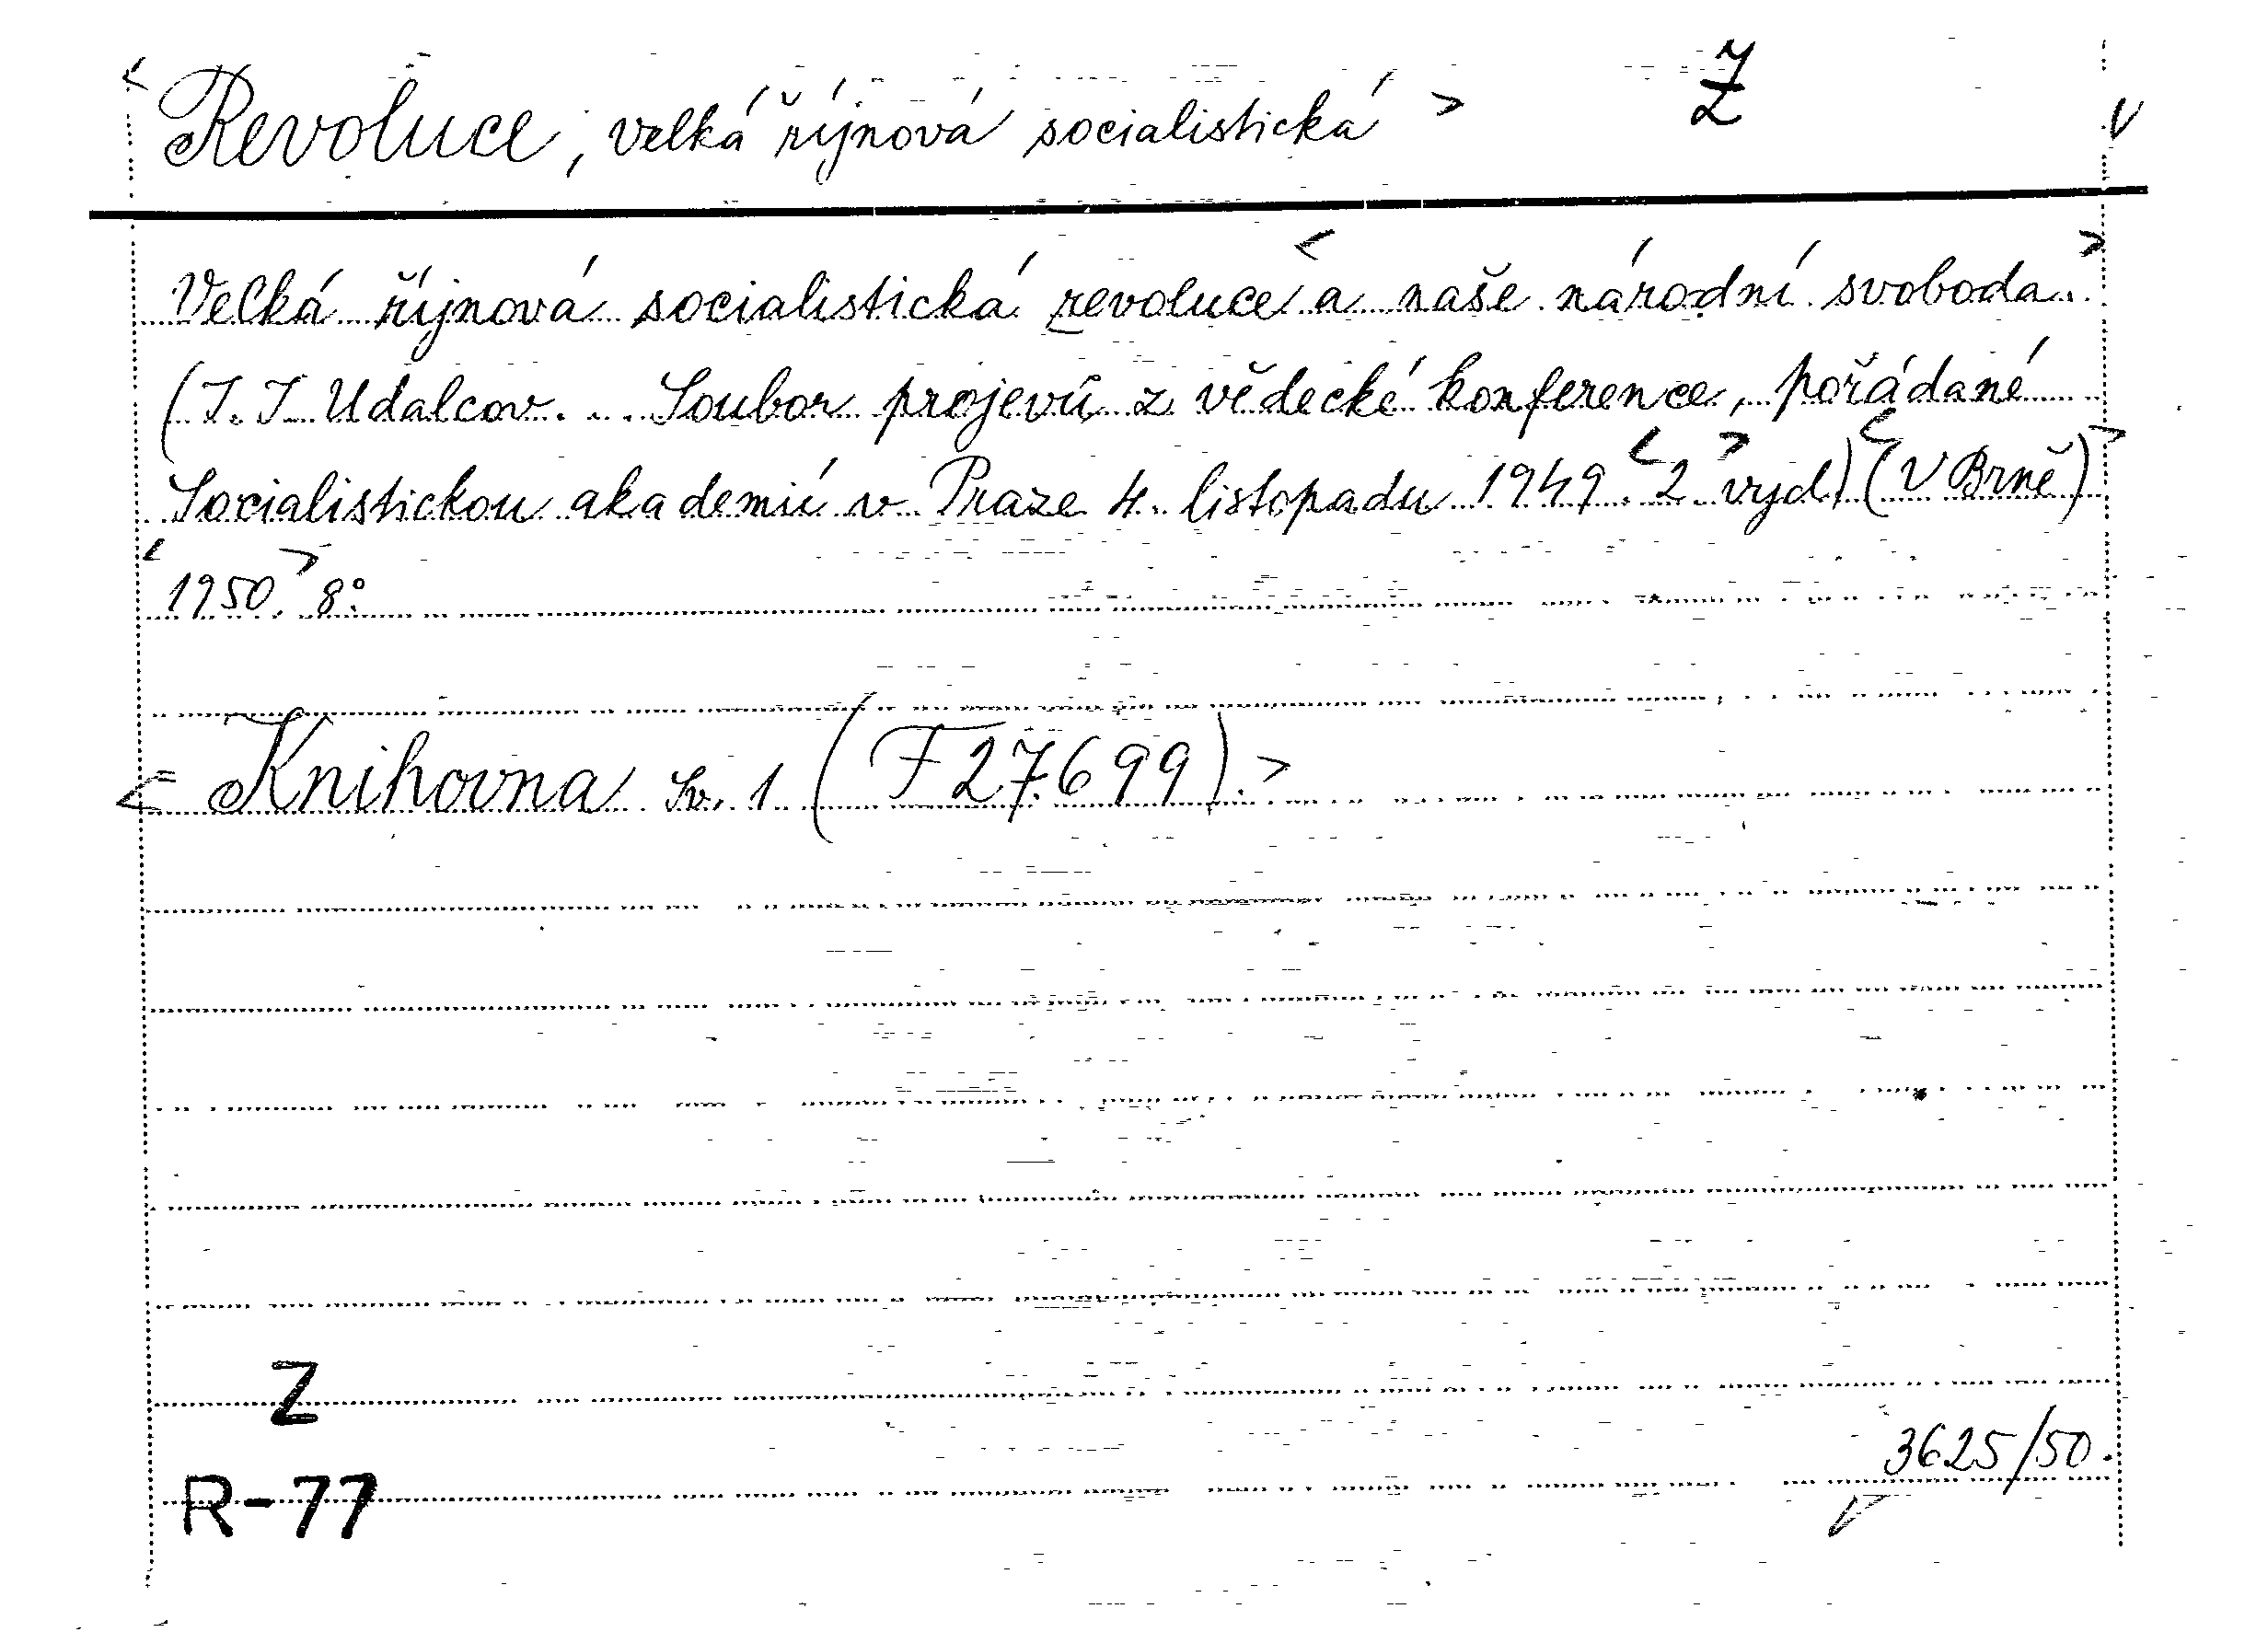 < Revoluce, velká říjnová socialistická > Z V
Velká říjnová socialistická revoluce < a naše národní svoboda. >
(I. I. Udalcov. .. Soubor projevů z vědecké konference, pořádané
Socialistickou akademií v Praze 4. listopadu 1949. < 2. > vyd.) < (V Brně) >
< 1950. > 8°.
< Knihovna Sv. 1 (F 27.699). >
Z
3625/50.
R-77